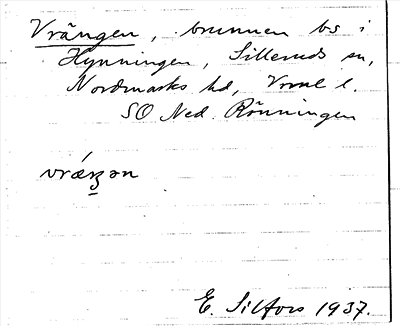 Vrängen, brunnen bs i
Hynningen, Silleruds sn,
Nordmarks hd, Vrml l.
SO Ned. Rönningen
vrǽŋən
E. Silfors 1937.